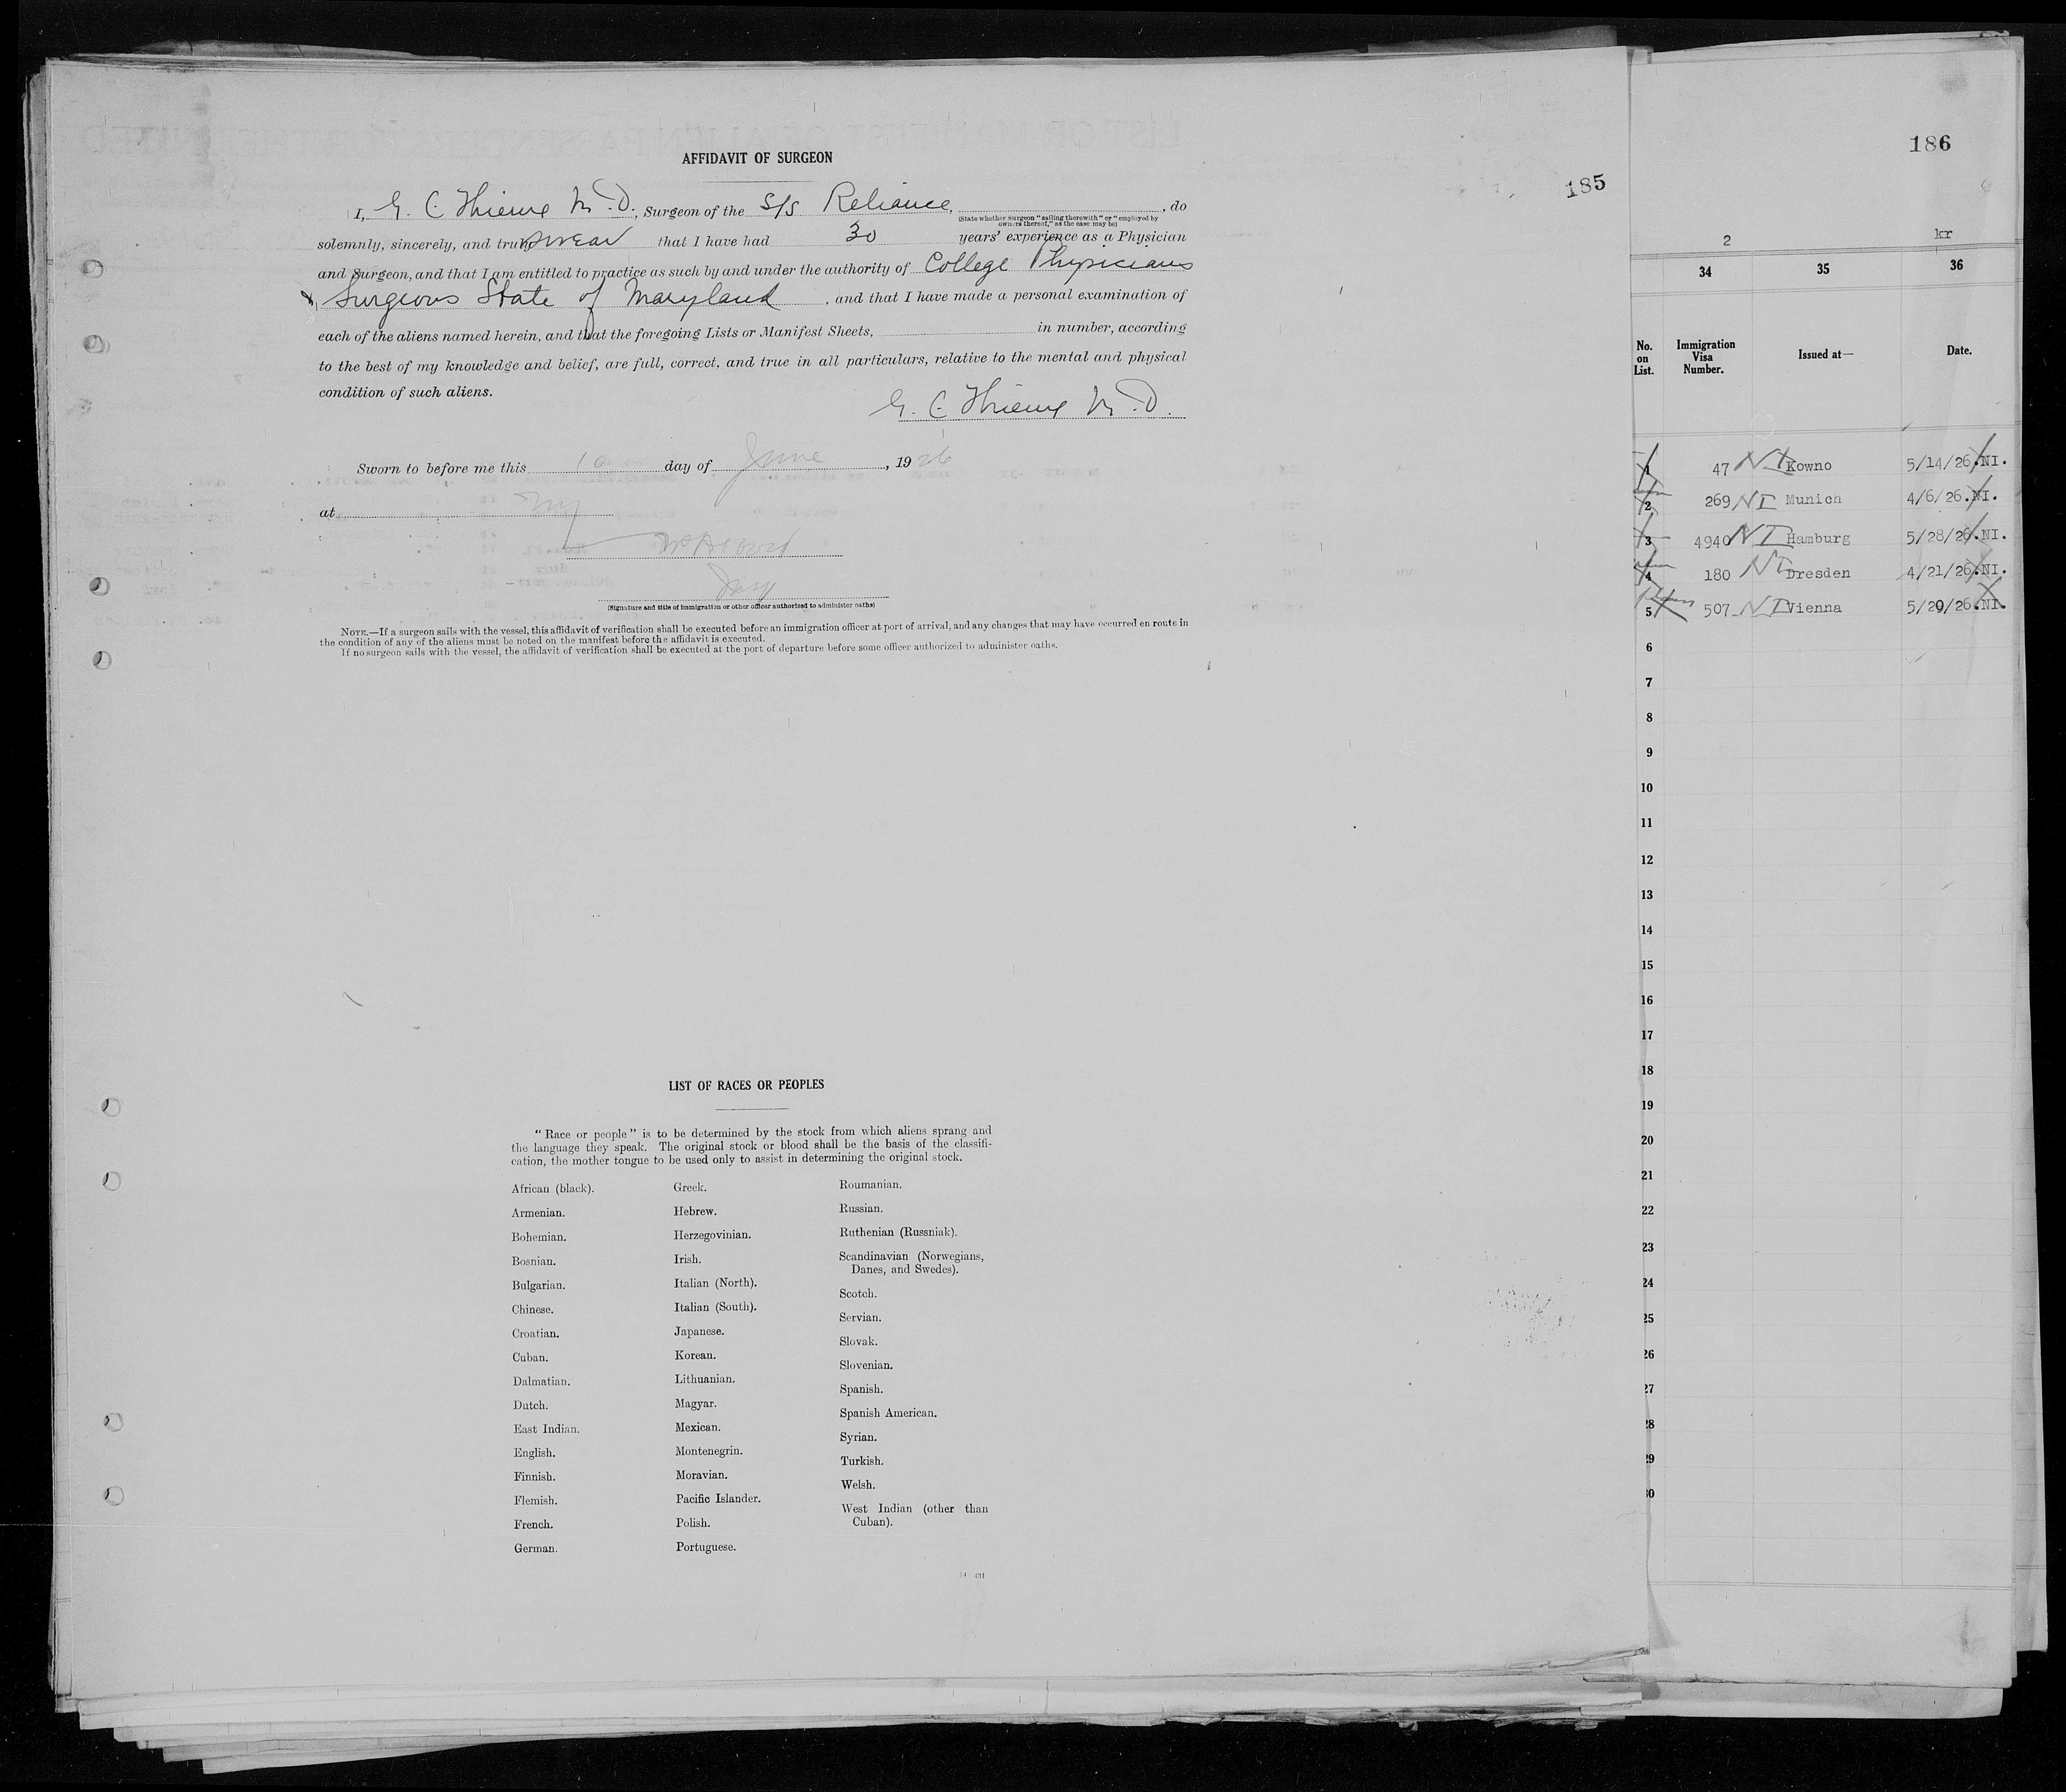 AFFIDAVIT OF SURGEON
185
I, G. C. Thieme M.D., Surgeon of the S/S Reliance, , do
(State whether Surgeon "sailing therewith" or "employed by
owners thereof," as the case may be)
solemnly, sincerely, and truly swear that I have had 30 years' experience as a Physician
and Surgeon, and that I am entitled to practice as such by and under the authority of College Physicians
& Surgeons State of Maryland , and that I have made a personal examination of
each of the aliens named herein, and that the foregoing Lists or Manifest Sheets, in number, according
to the best of my knowledge and belief, are full, correct, and true in all particulars, relative to the mental and physical
condition of such aliens.
G. C. Thieme M.D.
Sworn to before me this 10 day of June, 1926
at NY
(Signature and title of immigration or other officer authorized to administer oaths)
NOTE.—If a surgeon sails with the vessel, this affidavit of verification shall be executed before an immigration officer at port of arrival, and any changes that may have occurred en route in
the condition of any of the aliens must be noted on the manifest before the affidavit is executed.
If no surgeon sails with the vessel, the affidavit of verification shall be executed at the port of departure before some officer authorized to administer oaths.
LIST OF RACES OR PEOPLES
"Race or people" is to be determined by the stock from which aliens sprang and
the language they speak. The original stock or blood shall be the basis of the classifi-
cation, the mother tongue to be used only to assist in determining the original stock.
African (black).
Armenian.
Bohemian.
Bosnian.
Bulgarian.
Chinese.
Croatian.
Cuban.
Dalmatian.
Dutch.
East Indian.
English.
Finnish.
Flemish.
French.
German.
Greek.
Hebrew.
Herzegovinian.
Irish.
Italian (North).
Italian (South).
Japanese.
Korean.
Lithuanian.
Magyar.
Mexican.
Montenegrin.
Moravian.
Pacific Islander.
Polish.
Portuguese.
Roumanian.
Russian.
Ruthenian (Russniak).
Scandinavian (Norwegians,
Danes, and Swedes).
Scotch.
Servian.
Slovak.
Slovenian.
Spanish.
Spanish American.
Syrian.
Turkish.
Welsh.
West Indian (other than
Cuban).
186
2 kr
34 35 36
No.
on
List.
Immigration
Visa
Number.
Issued at—
Date.
1 47 NI Kowno 5/14/26.NI.
2 269 NI Munich 4/6/26.NI.
3 4940 NI Hamburg 5/28/26.NI.
4 180 NI Dresden 4/21/26.NI.
5 507 NI Vienna 5/20/26.NI.
6
7
8
9
10
11
12
13
14
15
16
17
18
19
20
21
22
23
24
25
26
27
28
29
30